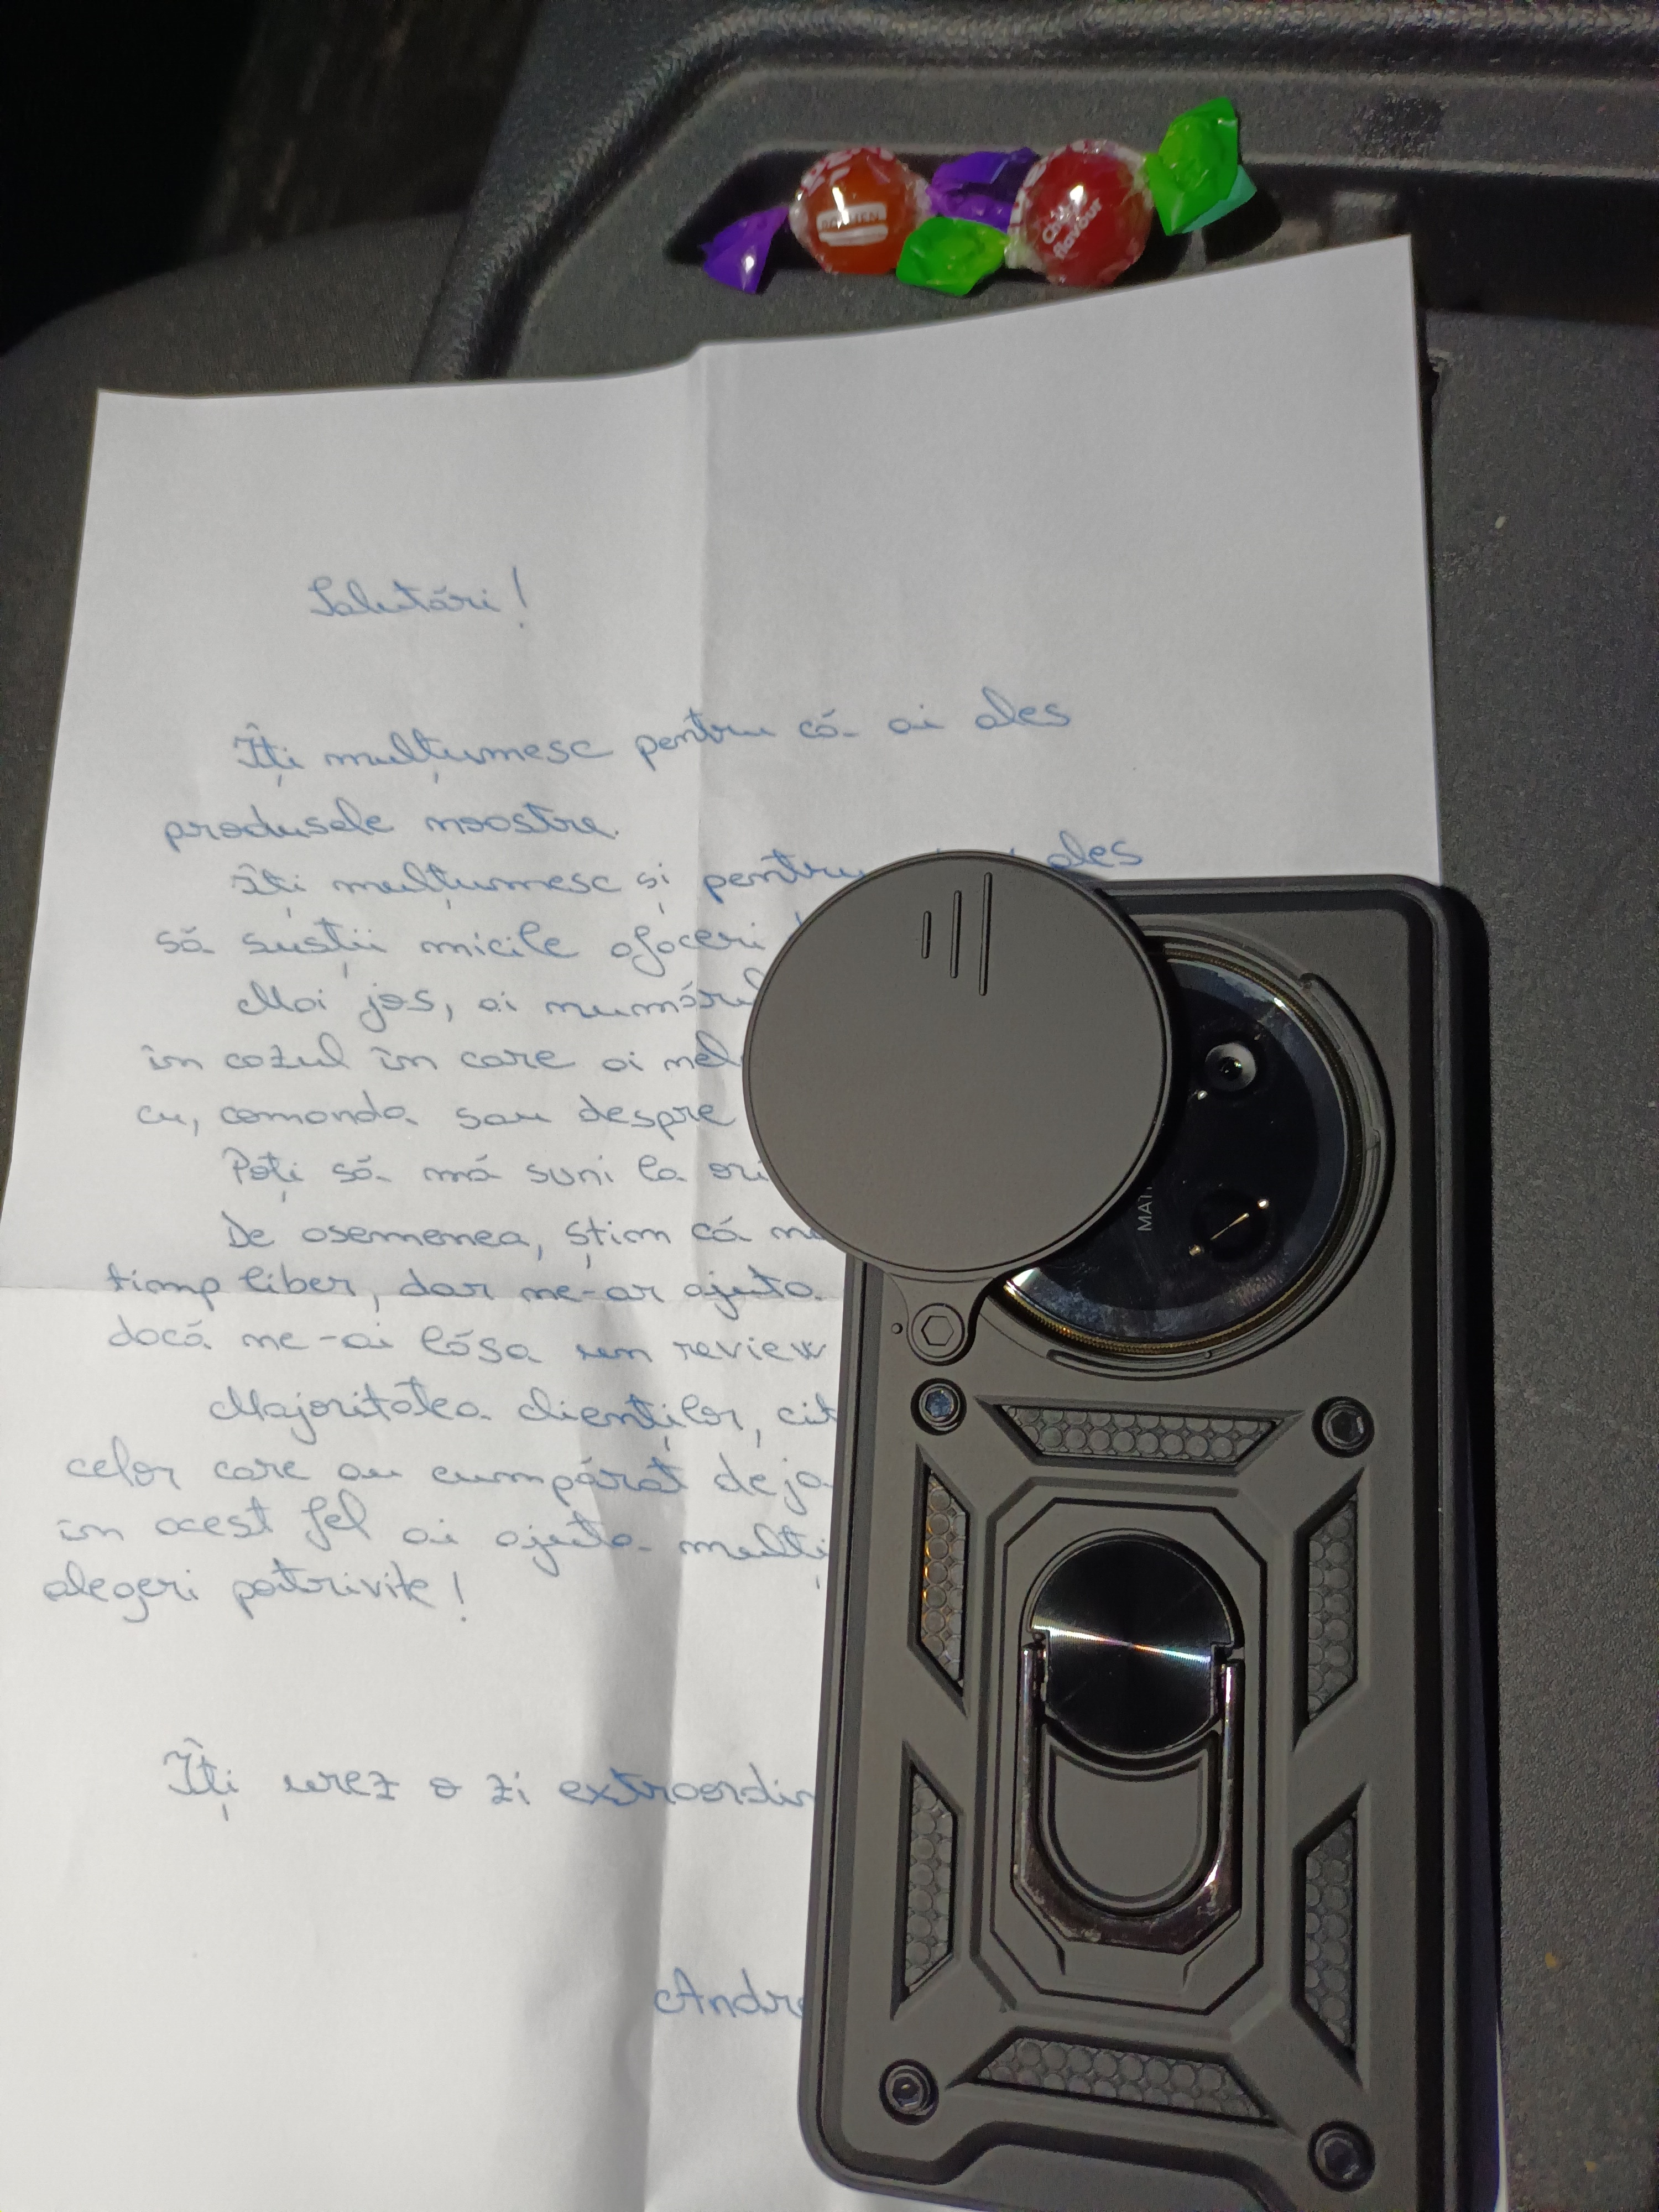 ROSHEN
Cherry
flavour
Salutări!
Îți mulțumesc pentru că ai ales
produsele noastre.
Îți mulțumesc și pentru ales
să susții micile afaceri
Mai jos, ai numărul
în cazul în care ai nel
cu, comanda sau despre
Poți să mă suni la ori
De asemenea, știm că nu
timp liber, dar ne-ar ajuta
dacă ne-ai lăsa un review
Majoritatea clienților, cit
celor care au cumpărat deja
în acest fel ai ajuta mulți
alegeri potrivite!
Îți urez o zi extraordin
Andre
MAT